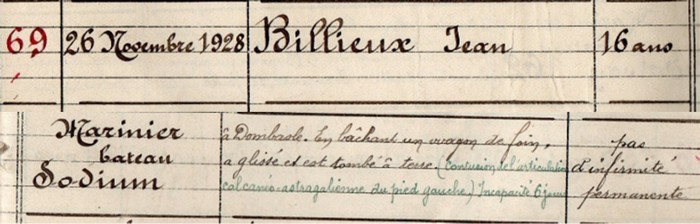 69 26 Novembre 1928 Billieux Jean 16 ans
Marinier
bateau
Sodium
à Dombasle. En bâchant un wagon de foin,
a glissé et est tombé à terre (Contusion de l'articulation
calcanéo-astragalienne du pied gauche.) Incapacité 6 jours
pas
d'infirmité
permanente